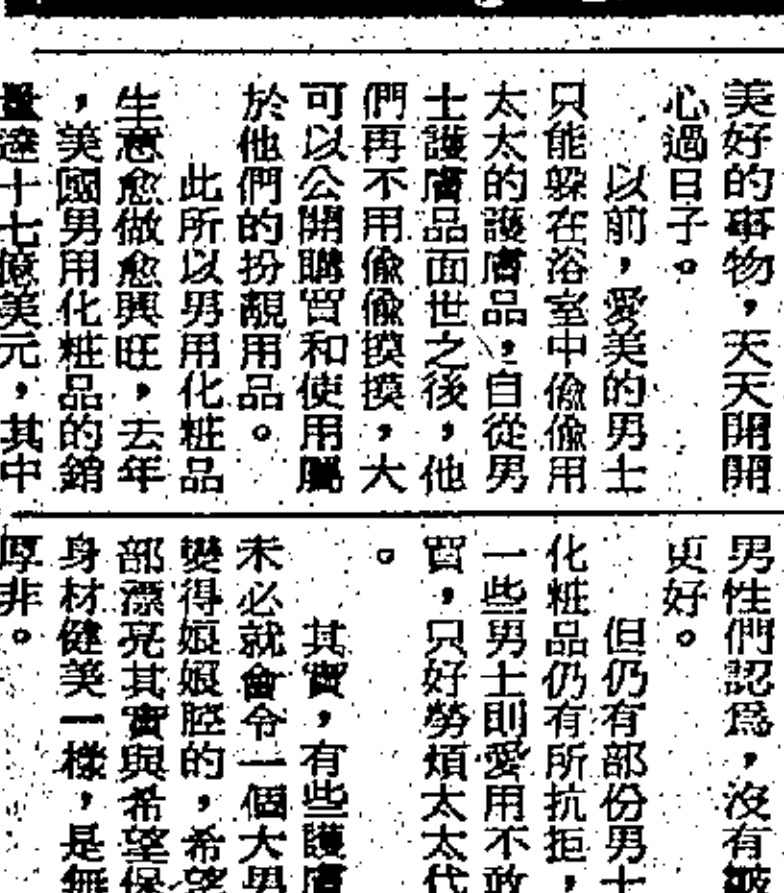 美好的事物，天天開開
心過日子。
以前，愛美的男士
只能躲在浴室中偸偸用
太太的護膚品，自從男
士護膚品面世之後，他
們再不用偸偸摸摸，大
可以公開購買和使用屬
於他們的扮靚用品。
此所以男用化粧品
生意愈做愈興旺，去年
，美國男用化粧品的銷
量達十七億美元，其中
男性們認爲，沒有
更好。
但仍有部份男士
化粧品仍有所抗拒，
一些男士則愛用不敢
買，只好勞煩太太代
。
其實，有些護膚
未必就會令一個大男
變得娘娘腔的，希望
部漂亮其實與希望保
身材健美一樣，是無
厚非。